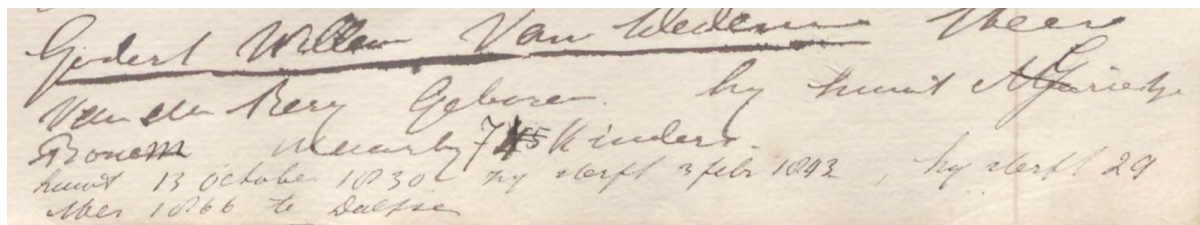 Godert Willem Van Wedem Heere
Van den Berg Geboren. hy huwt Grietje
Bouem Waarby 7 Kinders.
huwt 13 october 1830 zy sterft 3 febr 1843, hy sterft 29
Mei 1866 te Dalfsen